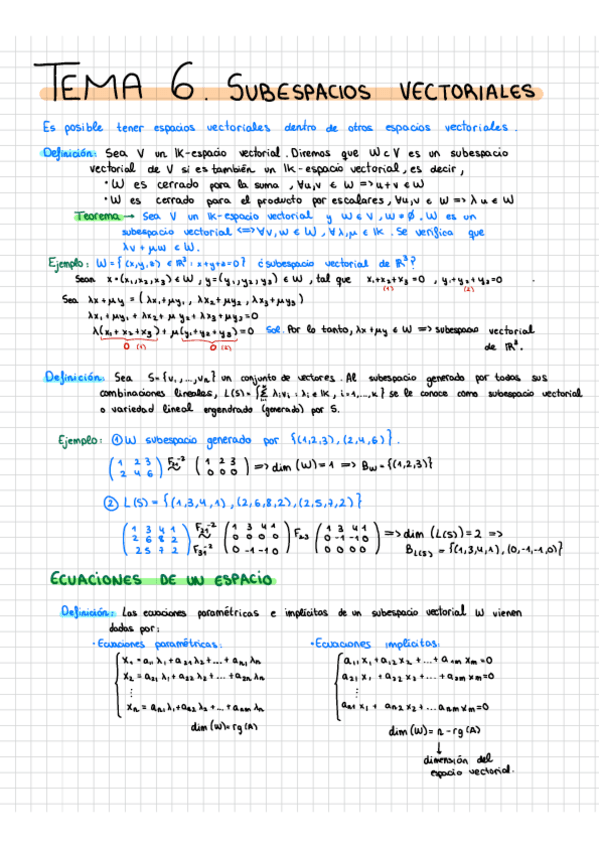 TEMA 6. SUBESPACIOS VECTORIALES
Es posible tener espacios vectoriales dentro de otros espacios vectoriales.
Definición: Sea V un IK-espacio vectorial. Diremos que W⊂V es un subespacio
vectorial de V si es también un IK-espacio vectorial, es decir,
• W es cerrado para la suma, ∀u,v ∈ W => u+v ∈ W
• W es cerrado para el producto por escalares, ∀u,v ∈ W => λu ∈ W
Teorema → Sea V un IK-espacio vectorial y W ⊂ V, W ≠ ∅. W es un
subespacio vectorial <=> ∀v,w ∈ W, ∀λ,μ ∈ IK. Se verifica que
λv + μw ∈ W.
Ejemplo: W = {(x,y,z) ∈ ℝ³ : x+y+z=0} ¿subespacio vectorial de ℝ³?
Sean x=(x₁,x₂,x₃) ∈ W, y=(y₁,y₂,y₃) ∈ W, tal que x₁+x₂+x₃=0, y₁+y₂+y₃=0
(1) (2)
Sea λx+μy = (λx₁+μy₁, λx₂+μy₂, λx₃+μy₃)
λx₁+μy₁+λx₂+μy₂+λx₃+μy₃=0
λ(x₁+x₂+x₃)+μ(y₁+y₂+y₃)=0 Sol. Por lo tanto, λx+μy ∈ W => subespacio vectorial
0 (1) 0 (2) de ℝ³.
Definición: Sea S={v₁,...,vₙ} un conjunto de vectores. Al subespacio generado por todas sus
combinaciones lineales, L(S)={Σ λᵢvᵢ : λᵢ ∈ IK, i=1,...,n} se le conoce como subespacio vectorial
o variedad lineal engendrado (generado) por S.
Ejemplo: ① W subespacio generado por {(1,2,3),(2,4,6)}.
(1 2 3) F₂₁⁻² (1 2 3) => dim (W)=1 => B_W={(1,2,3)}
(2 4 6) ~ (0 0 0)
② L(S)={(1,3,4,1),(2,6,8,2),(2,5,7,2)}
(1 3 4 1) F₂₁⁻² (1 3 4 1) F₂₃ (1 3 4 1) => dim (L(S))=2 =>
(2 6 8 2) ~ (0 0 0 0) (0 -1 -1 0) B_L(S) = {(1,3,4,1),(0,-1,-1,0)}
(2 5 7 2) F₃₁⁻² (0 -1 -1 0) (0 0 0 0)
ECUACIONES DE UN ESPACIO
Definición: Las ecuaciones paramétricas e implícitas de un subespacio vectorial W vienen
dadas por:
• Ecuaciones paramétricas: • Ecuaciones implícitas:
x₁ = a₁₁λ₁+a₂₁λ₂+...+aₙ₁λₙ a₁₁x₁+a₁₂x₂+...+a₁ₘxₘ=0
x₂ = a₂₁λ₁+a₂₂λ₂+...+a₂ₙλₙ a₂₁x₁+a₂₂x₂+...+a₂ₘxₘ=0
⋮ ⋮
xₙ = aₙ₁λ₁+aₙ₂λ₂+...+aₙₘλₙ aₙ₁x₁+aₙ₂x₂+...aₙₘxₘ=0
dim(W)=rg(A) dim(W)= n-rg(A)
↓
dimensión del
espacio vectorial.